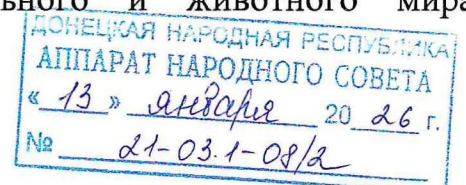 ьного и животного мира
ДОНЕЦКАЯ НАРОДНАЯ РЕСПУБЛИКА
АППАРАТ НАРОДНОГО СОВЕТА
« 13 » января 20 26 г.
№ 21-03.1-08/2